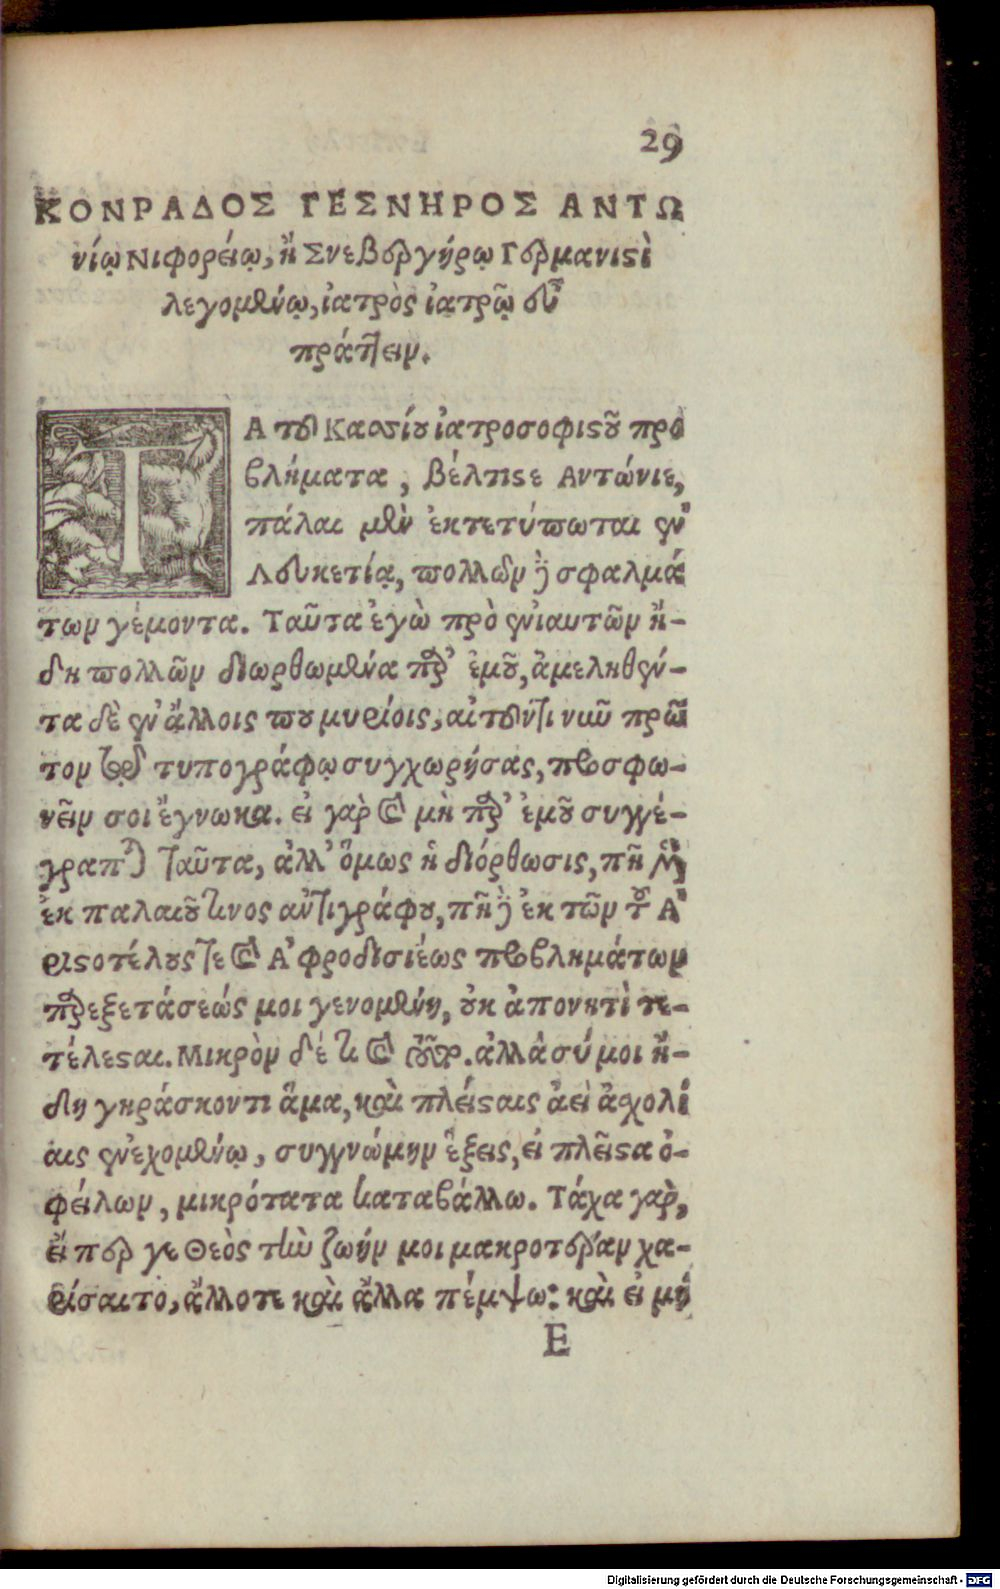 29
ΚΟΝΡΑΔΟΣ ΓΕΣΝΗΡΟΣ ΑΝΤΩ
νίῳ Νιφορείῳ, ἢ Σνεβεργήρῳ Γερμανιϛὶ
λεγομένῳ, ἰατρὸς ἰατρῷ εὖ
πράττειν.
ΤΑ τοῦ Κασσίου ἰατροσοφιϛοῦ προ
βλήματα, βέλτιϛε Αντώνιε,
πάλαι μὲν ἐκτετύπωται ἐν
Λουκετίᾳ, πολλῶν ἢ σφαλμά
των γέμοντα. Ταῦτα ἐγὼ πρὸ ἐνιαυτῶν ἤ-
δη πολλῶν διωρθωμένα παρ' ἐμοῦ, ἀμεληθέν-
τα δὲ ἐν ἄλλοις που μυρίοις, αἰτοῦντι νῦν πρῶ
τον τῷ τυπογράφῳ συγχωρήσας, προσφω-
νεῖν σοι ἔγνωκα. εἰ γὰρ καὶ μὴ παρ' ἐμοῦ συγγέ-
γραπται ταῦτα, ἀλλ' ὅμως ἡ διόρθωσις, πῆ μὲν
ἐκ παλαιοῦ τινος ἀντιγράφου, πῆ δὲ ἐκ τῶν τοῦ Α'
ριϛοτέλους τε καὶ Α'φροδισιέως προβλημάτων
παρεξετάσεώς μοι γενομένη, οὐκ ἀπονητὶ τε-
τέλεϛαι. Μικρὸν δέ τι καὶ δῶρον. ἀλλὰ σύ μοι ἤ-
δη γηράσκοντι ἅμα, καὶ πλείϛαις ἀεὶ ἀσχολί
αις ἐνεχομένῳ, συγγνώμην ἕξεις, εἰ πλεῖϛα ὀ-
φείλων, μικρότατα καταβάλλω. Τάχα γὰρ,
εἴπερ γε Θεὸς τὴν ζωήν μοι μακροτέραν χα-
ρίσαιτο, ἄλλοτε καὶ ἄλλα πέμψω: καὶ εἰ μή
E
Digitalisierung gefördert durch die Deutsche Forschungsgemeinschaft - DFG